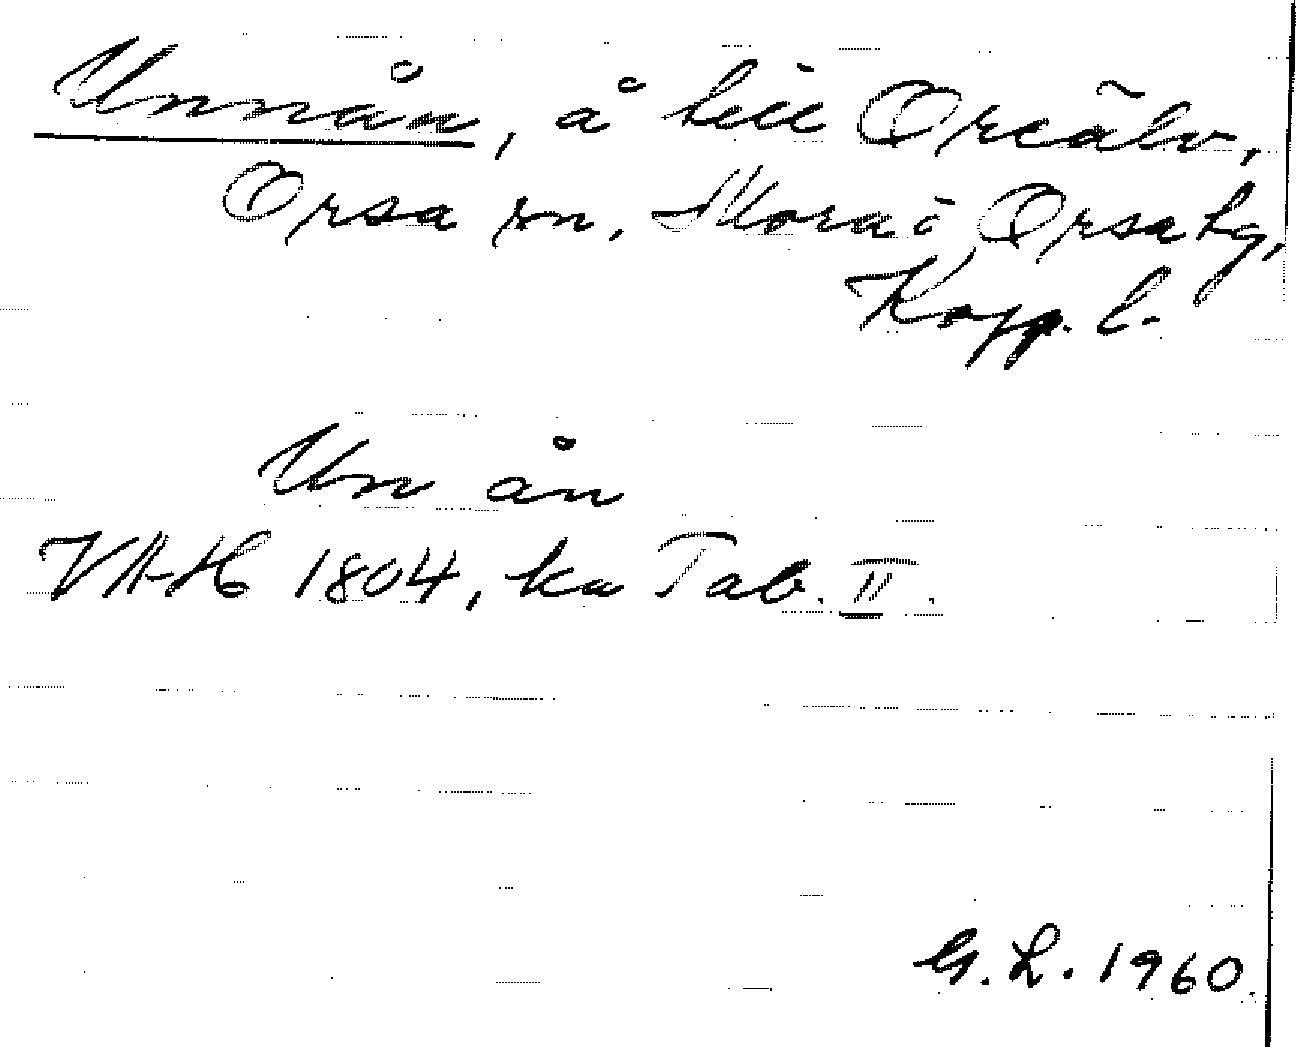 Unnån, å till Oreälv,
Orsa sn, Mora o Orsa tg,
Kopp. l.
Un ån
VAH 1804, ka Tab. II.
G. L. 1960.